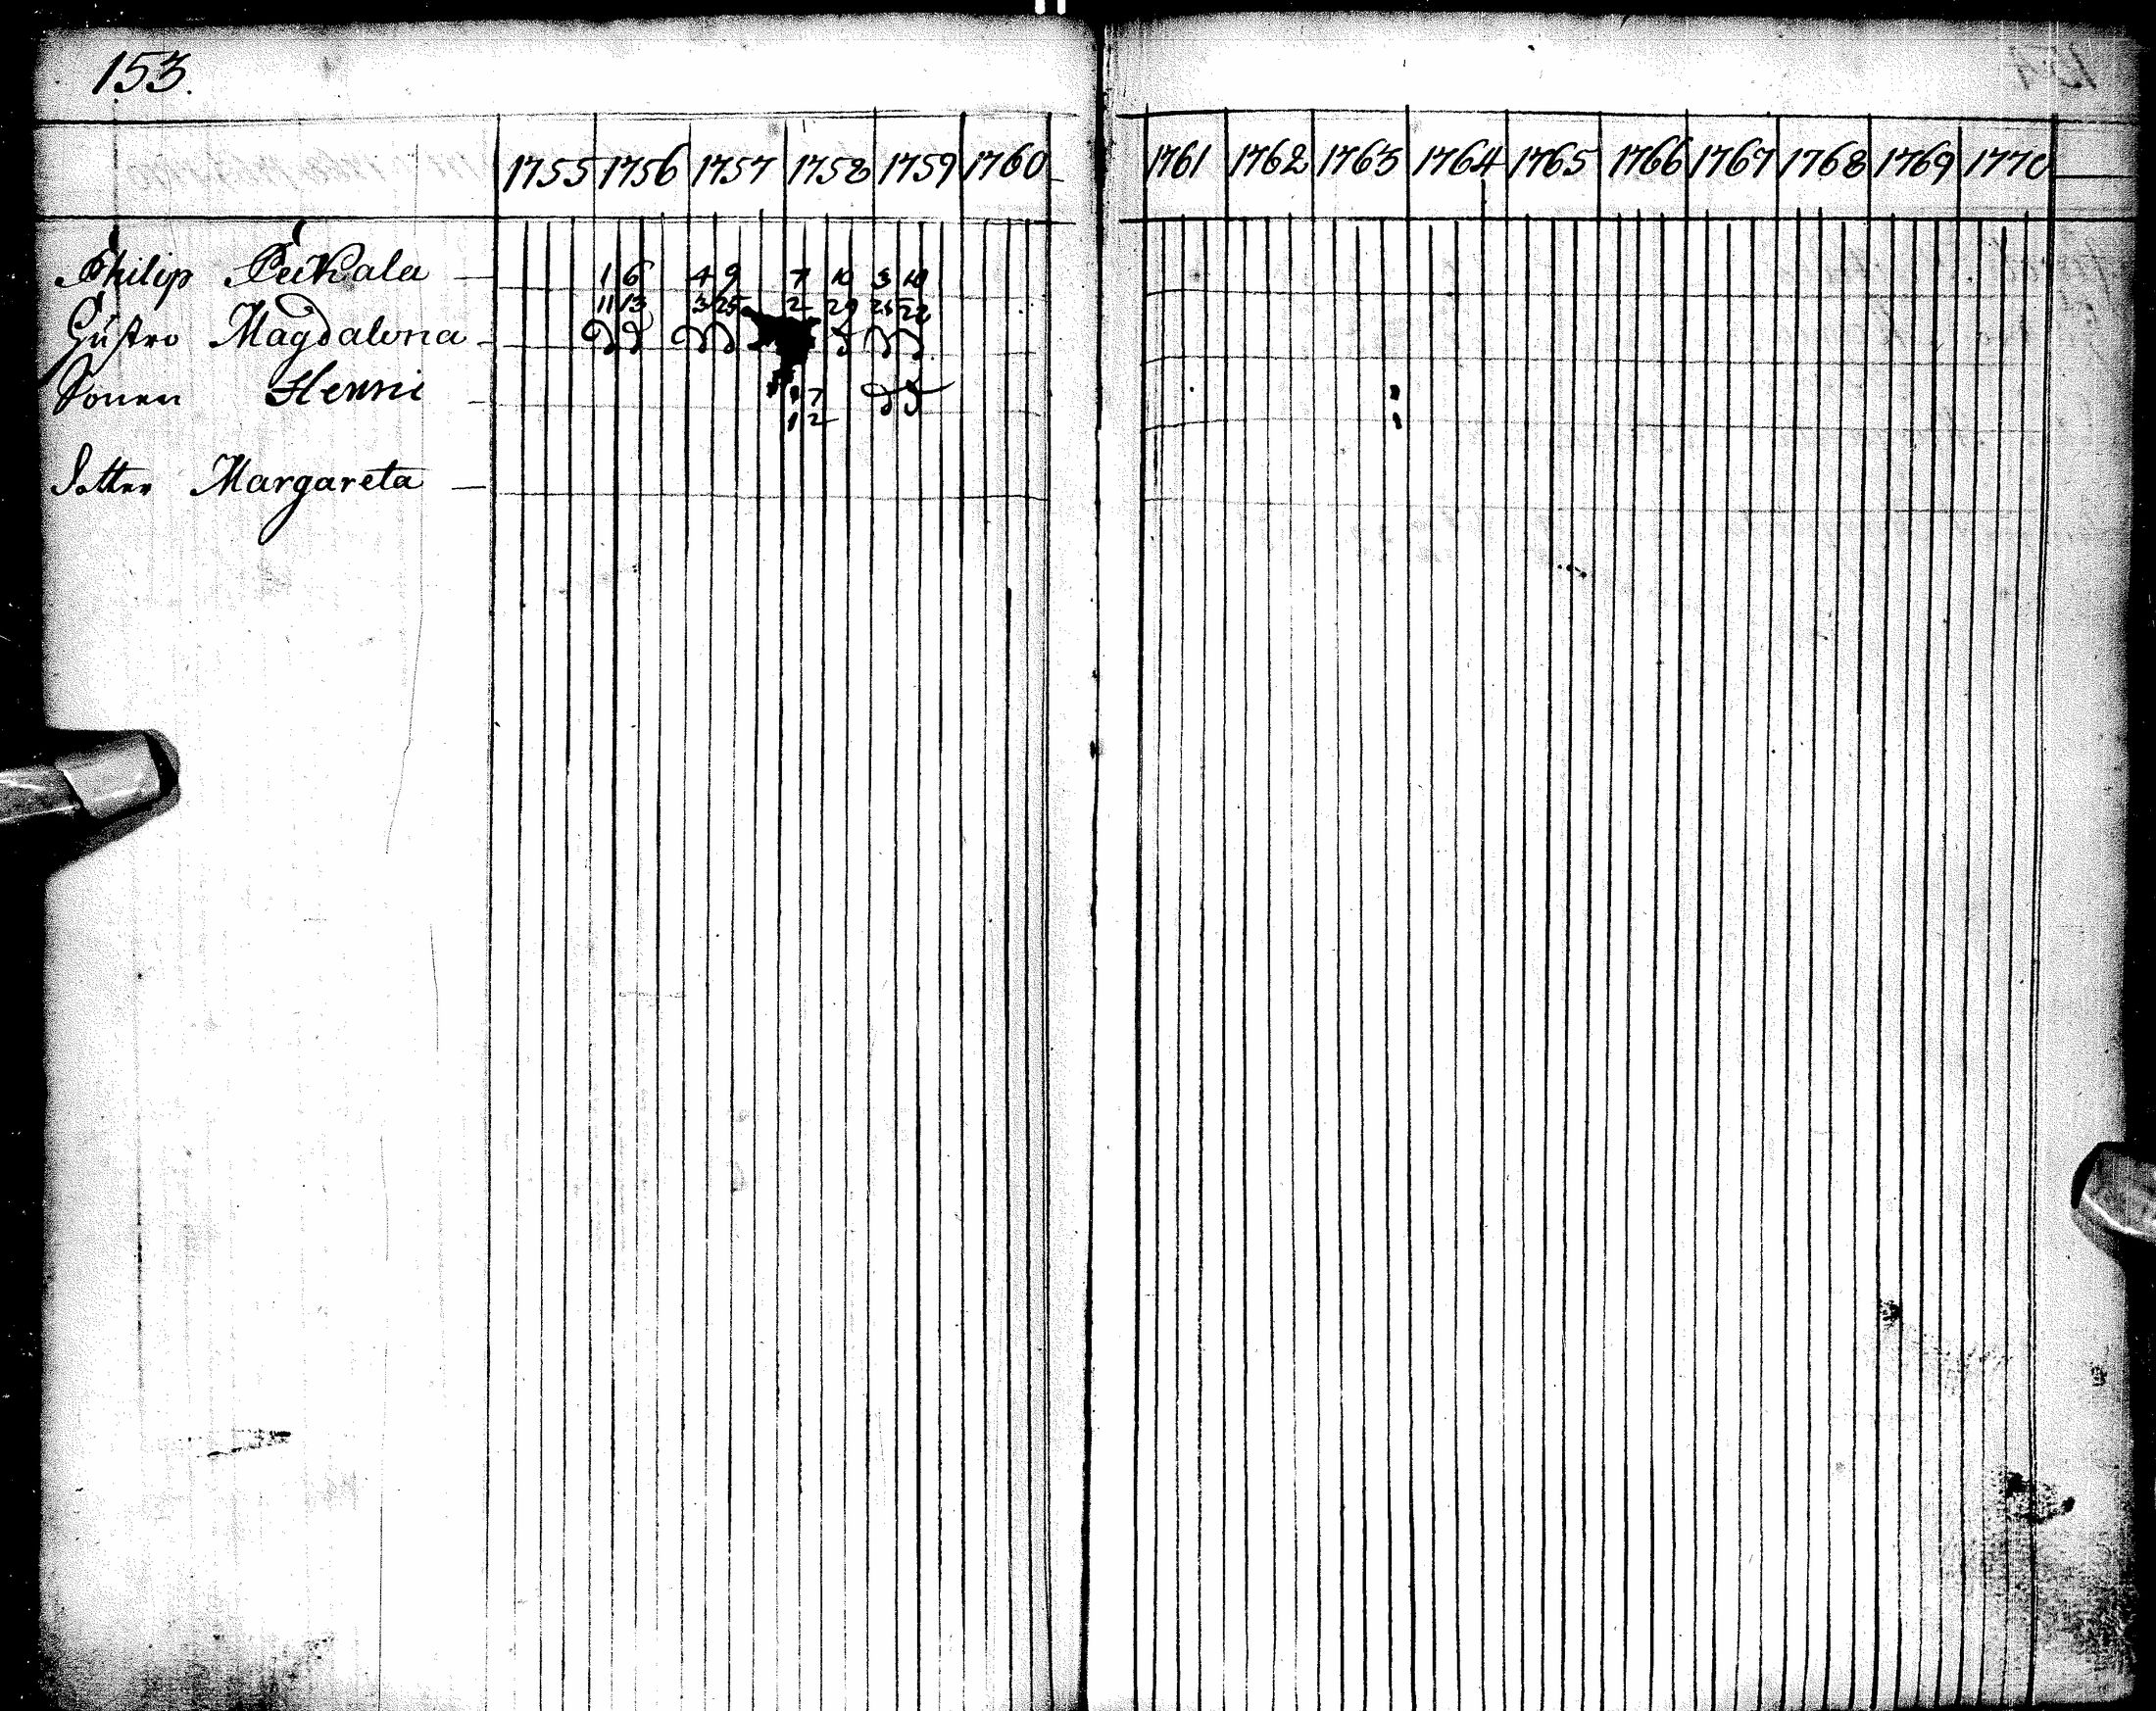 153.
1755 1756 1757 1758 1759 1760 1761 1762 1763 1764 1765 1766 1767 1768 1769 1770
Philip Peekala 1 6 4 9 7 10 3 10
11 13 3 25 2 29 25 22
Hustro Magdalena
Sonen Henric 1 7
1 2
Dotter Margareta